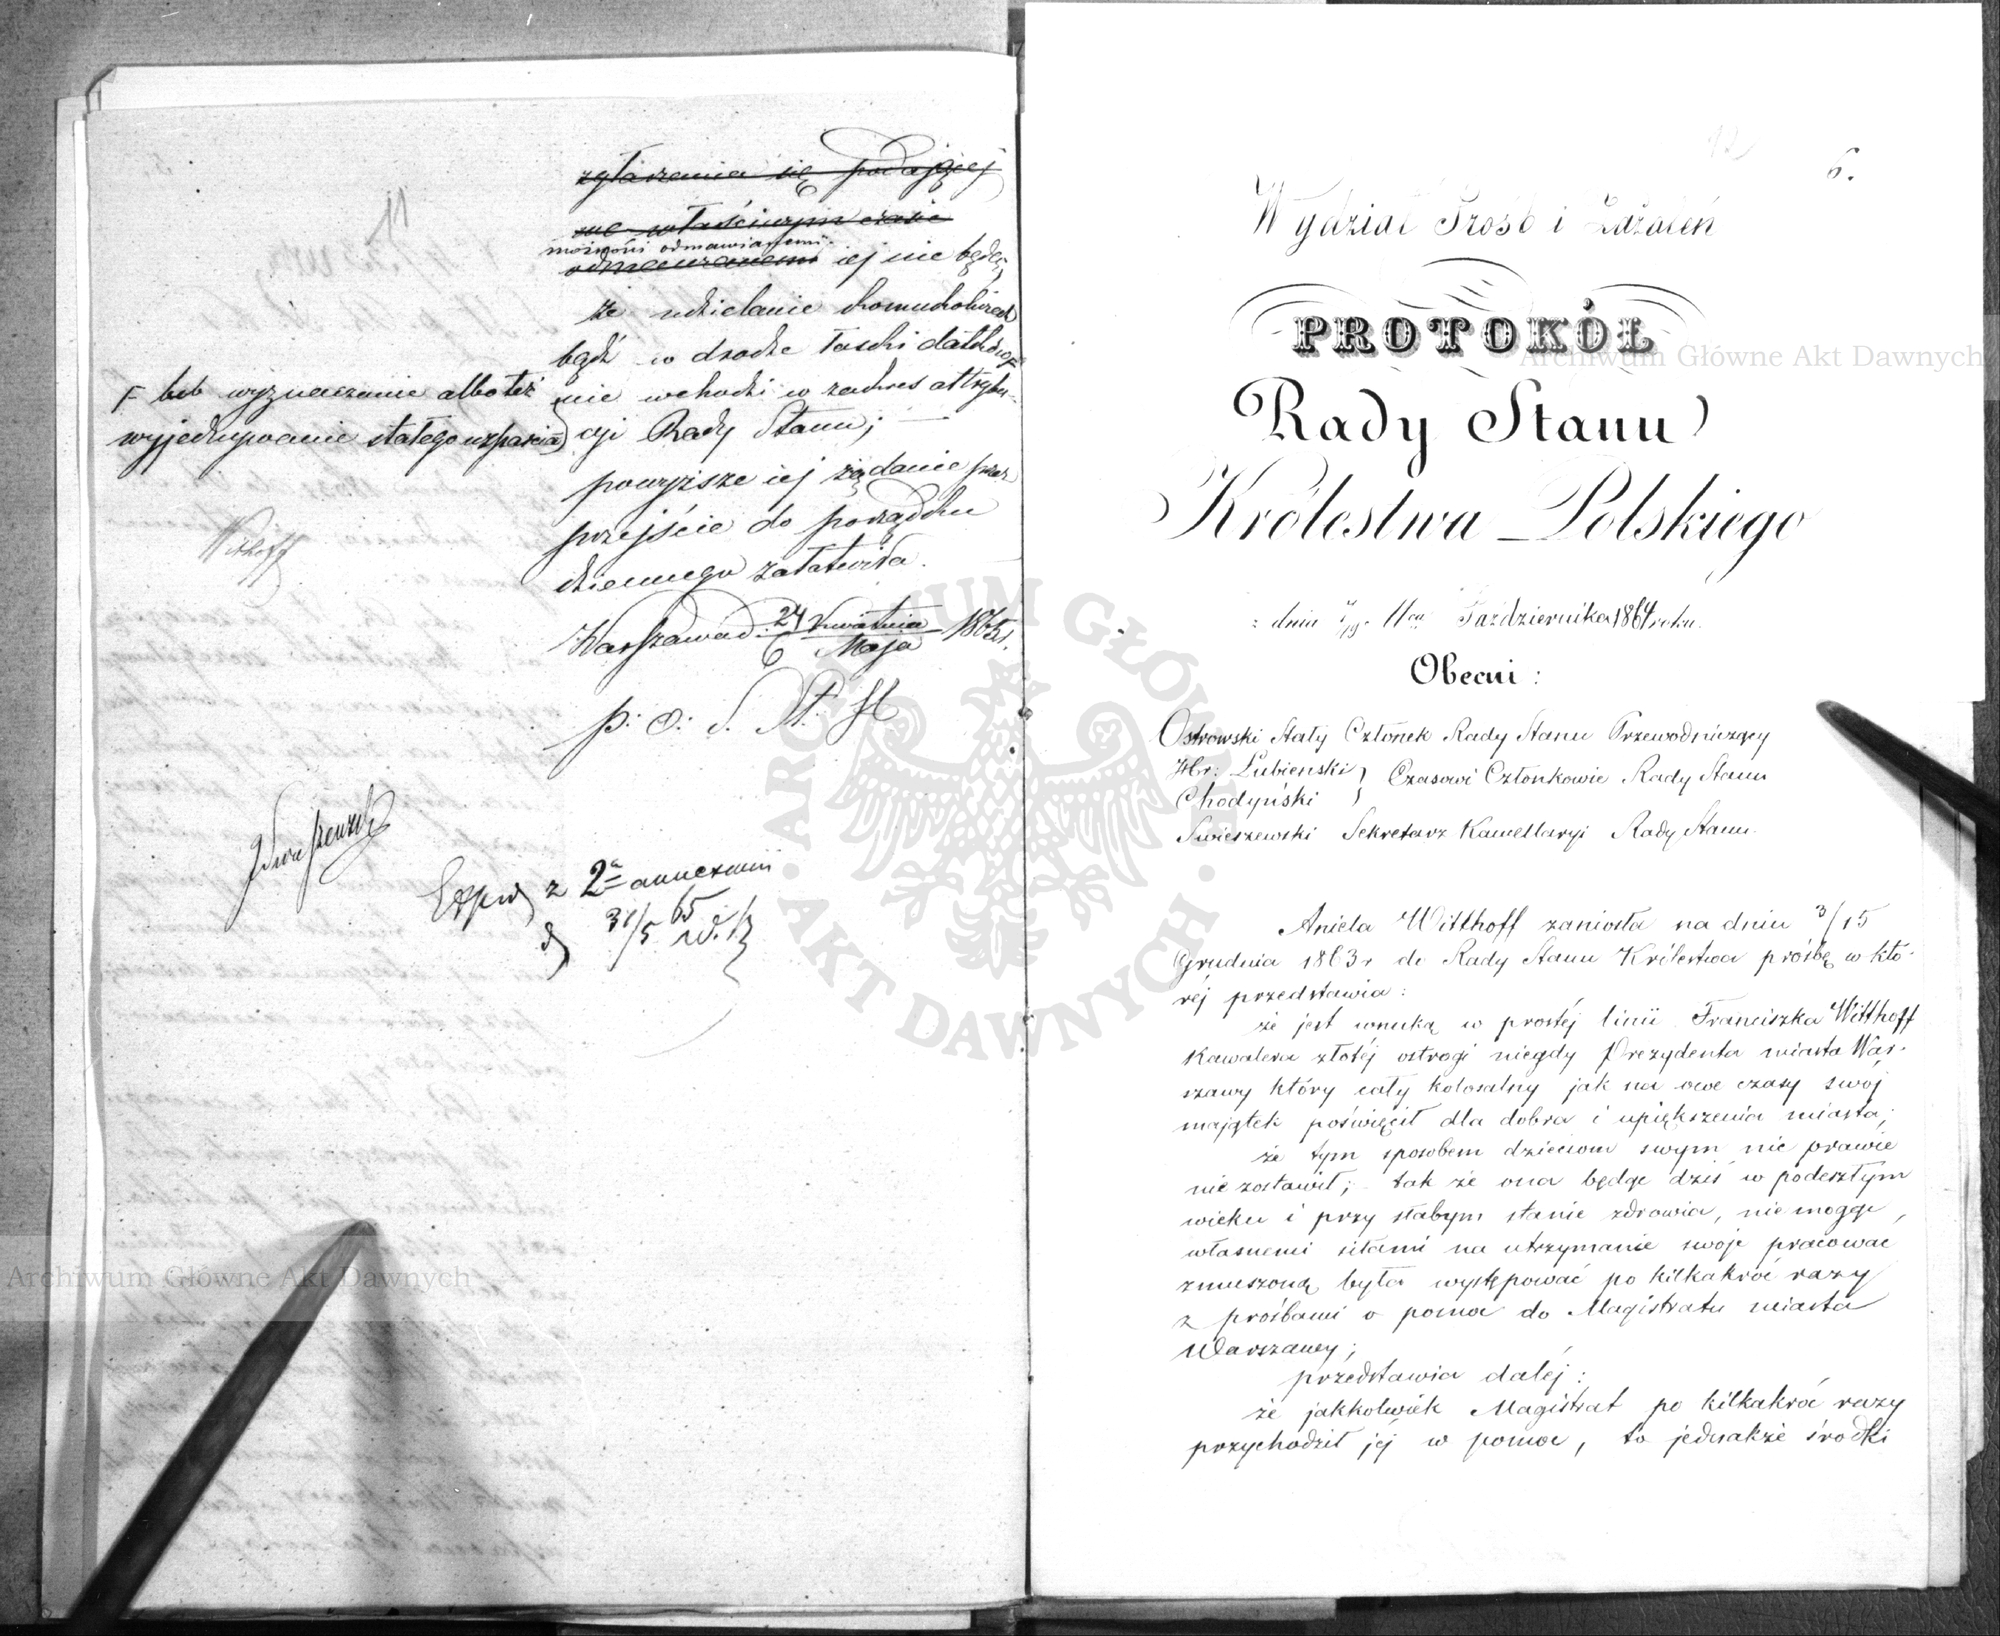 zgłaszania się podającej
we właściwym czasie
możności odmawianemi
iej nie będą,
że udzielanie komukolwiek
bądź w drodze łaski datków F
F lub wyznaczanie albo też
wyjednywanie stałego wsparcia
nie wchodzi w zakres attrybu-
cji Rady Stanu;
powyższe iej żądanie przez
przejście do porządku
dziennego załatwiła.
Witthoff
Warszawa d. 24 Kwietnia / 6 Maja 1865 r.
p: o: S. St. H
z 2ª
d 31/5 65
6.
Wydział Prośb i Zażaleń
PROTOKÓŁ
Rady Stanu
Królestwa Polskiego
z dnia 11go Października 1864 roku.
Obecni:
Ostrowski Stały Członek Rady Stanu Przewodniczący
Hr: Łubieński } Czasowi Członkowie Rady Stanu
Chodyński
Swieszewski Sekretarz Kancellaryi Rady Stanu.
Aniela Witthoff zaniosła na dniu 3/15
Grudnia 1863 r do Rady Stanu Królestwa prośbę w któ-
réj przedstawia:
że jest wnuką w prostéj linii Franciszka Witthoff
Kawalera złotéj ostrogi niegdy Prezydenta miasta War-
szawy który cały kolosalny jak na owe czasy swój
majątek poświęcił dla dobra i upiększenia miasta;
że tym sposobem dzieciom swym nic prawie
nie zostawił; tak że ona będąc dziś w podeszłym
wieku i przy słabym stanie zdrowia, nie mogąc
własnemi siłami na utrzymanie swoje pracować
zmuszoną była występować po kilkakroć razy
z prośbami o pomoc do Magistratu miasta
Warszawy;
przedstawia daléj:
że jakkolwiek Magistrat po kilkakroć razy
przychodził jéj w pomoc, to jednakże środki
Archiwum Główne Akt Dawnych
Archiwum Główne Akt Dawnych
ARCHIWUM GŁÓWNE AKT DAWNYCH